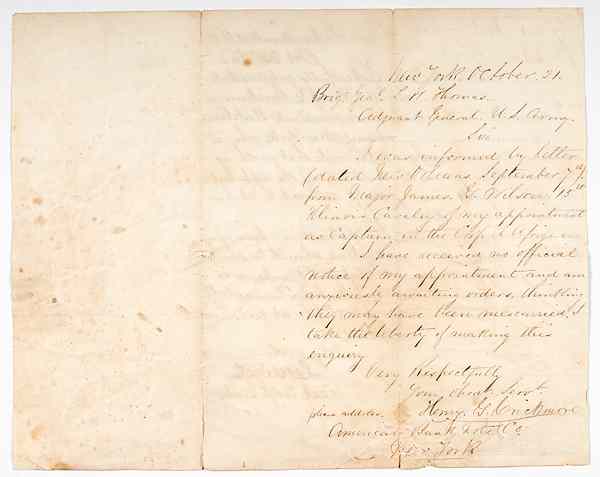 New York, October, 21.
Brig. Genl. L. H. Thomas
Adjutant General. U. S. Army.
Sir
I was informed by letter
(dated New Orleans, September 7th)
from Major James, Wilson, 15th
Illinois Cavalry, of my appointment
as Captain, in the Corps d Afrique
I have received no official
notice of my appointment and am
anxiously awaiting orders, thinking
they may have been miscarried, I
take the liberty of making this
enquiry
Very Respectfully
Your Obedt Servt.
please address, Henry G. Crickmore
American Bank Note Co
New York